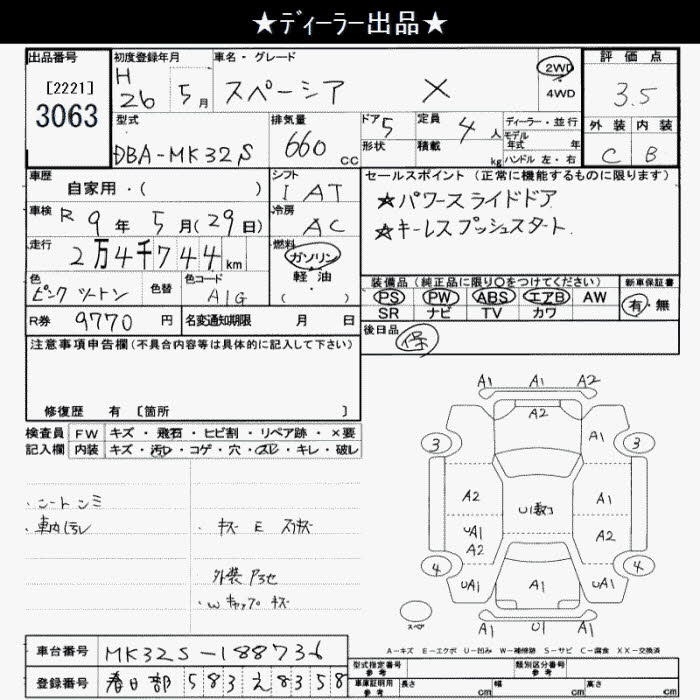 ★ディーラー出品★
出品番号
[2221]
3063
初度登録年月
H
26 5月
車名・グレード
スペーシア X
2WD
4WD
評価点
3.5
外装 内装
C B
型式
DBA-MK32S
排気量
660 cc
ドア 5
形状
定員 4 人
積載 kg
ディーラー・並行
モデル年式 年
ハンドル 左・右
車歴
自家用・( )
シフト
I AT
車検 R 9年 5月(29日)
冷房
AC
走行 2万4千744km
燃料
ガソリン
軽油
( )
色
ピンク ツートン
色替
色コード
A1G
R券 9770 円
名変通知期限 月 日
セールスポイント(正常に機能するものに限ります)
★パワースライドドア
★キーレスプッシュスタート
装備品(純正品に限り○をつけてください)
PS PW ABS エアB AW
SR ナビ TV カワ
新車保証書
有・無
後日品
保
注意事項申告欄(不具合内容等は具体的に記入して下さい)
修復歴 有 [箇所 ]
検査員
記入欄
FW キズ・飛石・ヒビ割・リペア跡・×要
内装 キズ・汚レ・コゲ・穴・スレ・キレ・破レ
・シートシミ
・車内汚レ
・キズ E スリキズ
外装
・Wキャップ キズ
A1 A1 A2
A2
3 A1 3
A2 U1数コ A1
UA1
A2 A2
4 4
UA1 A1 UA1
スペア
U1 A1 UA1
A-キズ E-エクボ U-凹み W-補修跡 S-サビ C-腐食 XX-交換済
車台番号 MK32S-188736
登録番号 春日部 583 え 8358
型式指定番号
参考
類別区分番号
参考
車庫証明用
参考
長さ cm 幅 cm 高さ cm